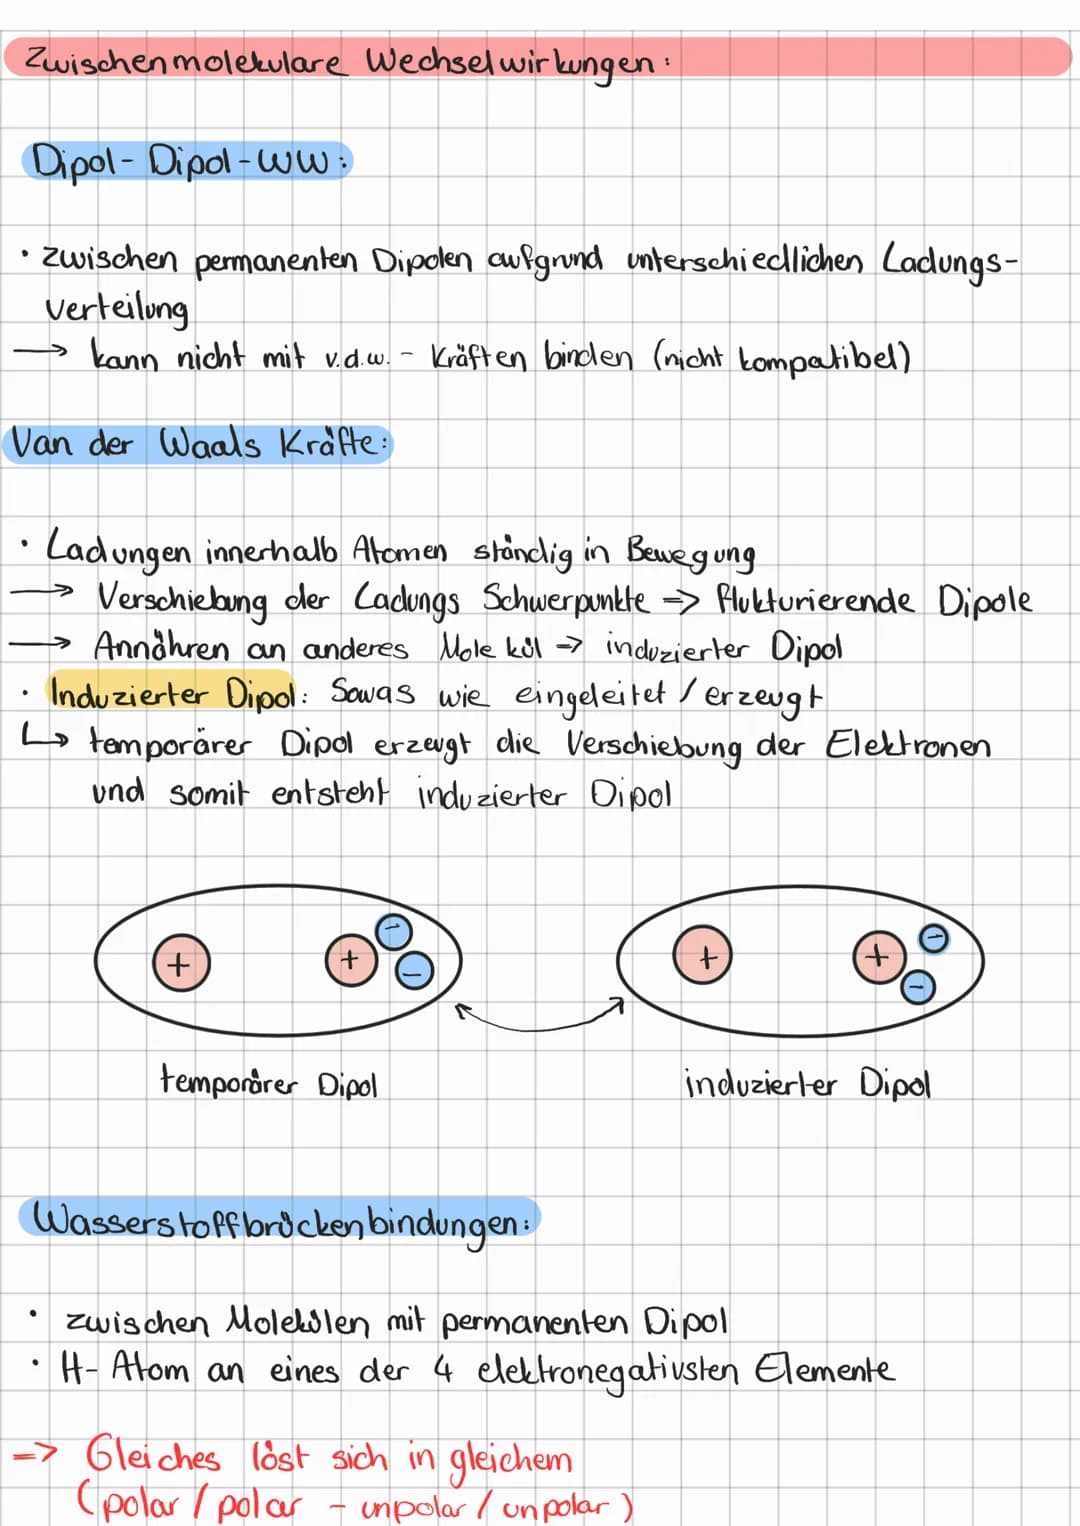 Zwischenmolekulare Wechselwirkungen:
Dipol-Dipol-WW:
· zwischen permanenten Dipolen aufgrund unterschiedlichen Ladungs-
verteilung
→ kann nicht mit v.d.w. - Kräften binden (nicht kompatibel)
Van der Waals Kräfte:
· Ladungen innerhalb Atomen ständig in Bewegung
→ Verschiebung der Ladungs Schwerpunkte => flukturierende Dipole
→ Annähren an anderes Molekül => induzierter Dipol
· Induzierter Dipol: Sowas wie eingeleitet / erzeugt
↳ temporärer Dipol erzeugt die Verschiebung der Elektronen
und somit entsteht induzierter Dipol
+ + - - + + - -
temporärer Dipol induzierter Dipol
Wasserstoffbrückenbindungen:
· zwischen Molekülen mit permanenten Dipol
· H-Atom an eines der 4 elektronegativsten Elemente
=> Gleiches löst sich in gleichem
(polar / polar - unpolar / unpolar)